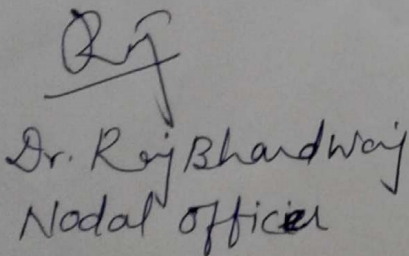 Raj
Dr. Raj Bhardwaj
Nodal Officer